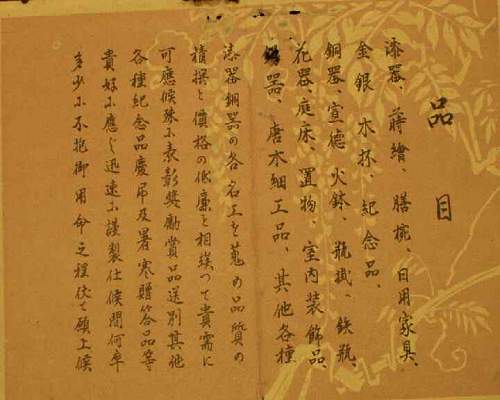 品目
漆器、蒔繪、膳椀、日用家具、
金銀木杯、紀念品、
銅器、宣徳火鉢、瓶掛、鉄瓶、
花器、庭床、置物、室内装飾品、
器、唐木細工品、其他各種
漆器銅器の各名工を蒐め品質の
精撰と價格の低廉と相竢つて貴需に
可應候殊に表彰奬勵賞品送別其他
各種紀念品慶吊及暑寒贈答品等
貴好に應じ迅速に謹製仕候間何卒
多少に不拘御用命之程伏て願上候